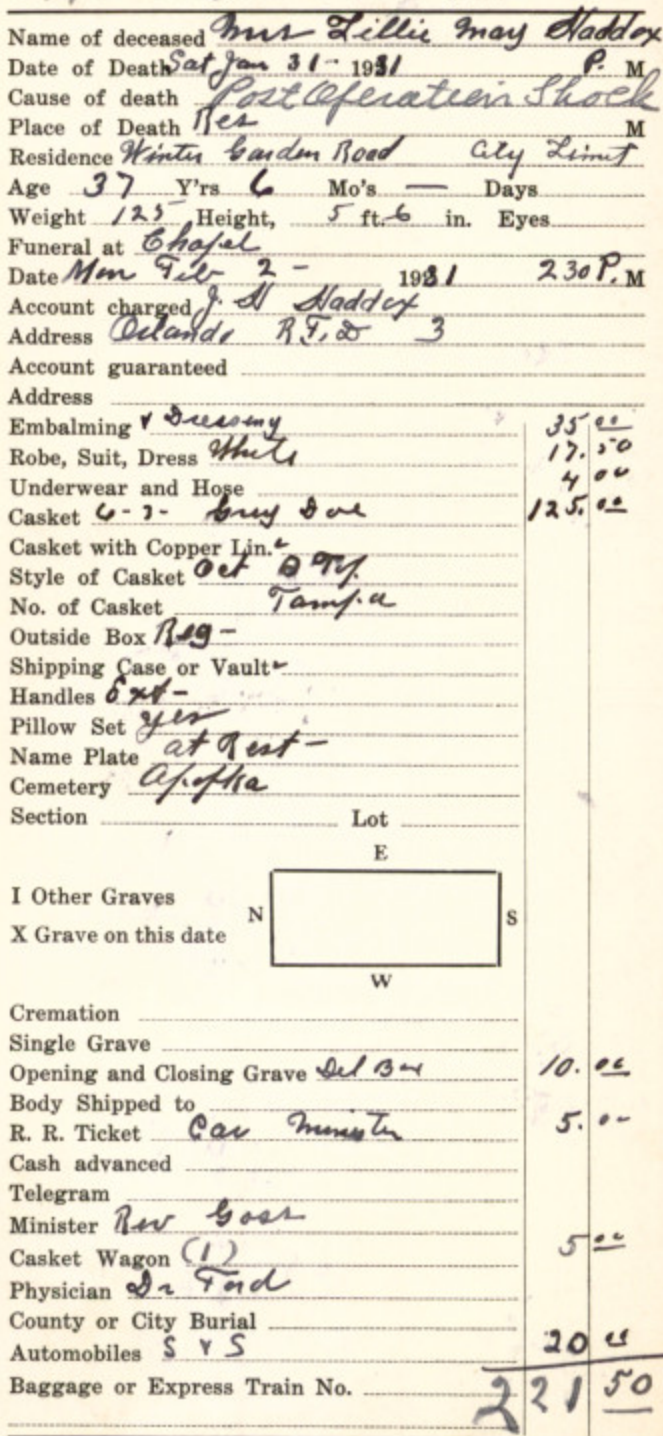 Name of deceased Mrs Lillie May Haddox
Date of Death Sat Jan 31 - 1931 P. M
Cause of death Post Operation Shock
Place of Death Res M
Residence Winter Garden Road City Limit
Age 37 Y'rs 6 Mo's — Days
Weight 125 Height, 5 ft. 6 in. Eyes
Funeral at Chapel
Date Mon Feb 2 - 1931 2 30 P. M
Account charged J. H Haddox
Address Orlando R.F.D 3
Account guaranteed
Address
Embalming & Dressing 35 00
Robe, Suit, Dress White 17. 50
Underwear and Hose 4 00
Casket 6-3- Grey Doe 125. 00
Casket with Copper Lin.
Style of Casket Oct
No. of Casket Tampa
Outside Box Reg -
Shipping Case or Vault
Handles Ext -
Pillow Set yes
Name Plate at Rest -
Cemetery Apopka
Section Lot
E
I Other Graves
N S
X Grave on this date
W
Cremation
Single Grave
Opening and Closing Grave Del Box 10. 00
Body Shipped to
R. R. Ticket Car Minister 5. 00
Cash advanced
Telegram
Minister Rev Goss
Casket Wagon (1) 5 00
Physician Dr Ford
County or City Burial
Automobiles S & S 20 00
Baggage or Express Train No. 221 50